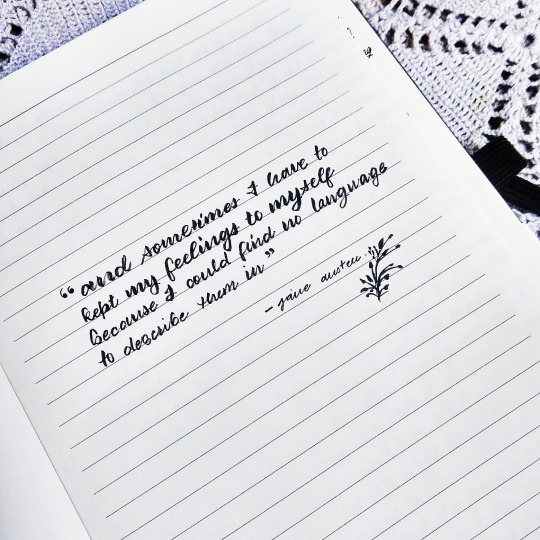 “and sometimes I have to
kept my feelings to myself
because I could find no language
to describe them in”
- jane austen